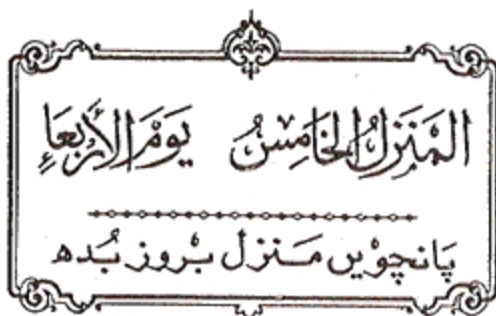 المَنزِلُ الخَامِسُ يَوْمَ الأَرْبعَاءِ
پَانچوْیں مَنزل بْروز بُدھ